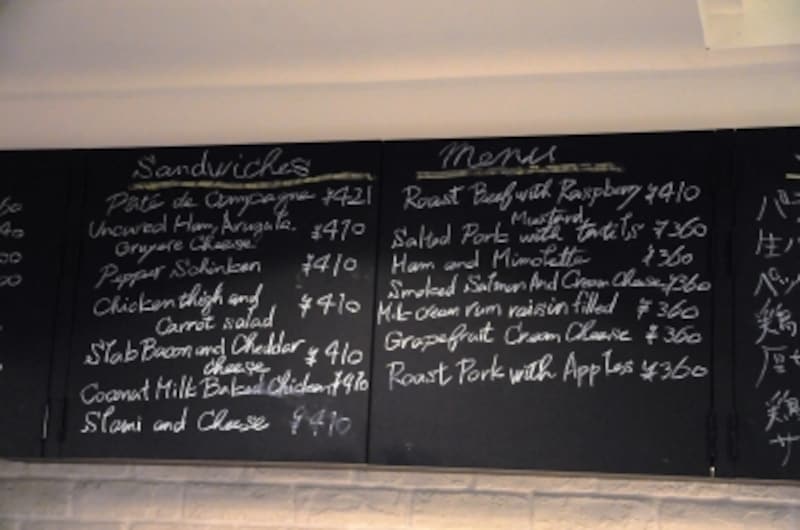 Sandwiches
Pâté de Campagne ¥421
Uncured Ham, Arugula, ¥470
Gruyere Cheese
Pepper Schinken ¥410
Chicken thigh and ¥410
Carrot salad
Slab Bacon and Cheddar ¥410
cheese
Coconut Milk Baked Chicken ¥410
Slami and Cheese ¥410
Menu
Roast Beef with Raspberry ¥410
Mustard
Salted Pork with ¥360
Ham and Mimolette ¥360
Smoked Salmon And Cream Cheese ¥360
Milk cream rum raisin filled ¥360
Grapefruit Cream Cheese ¥360
Roast Pork with Apples ¥360
パ
生ハ
ペッ
鶏
厚
鶏
サ